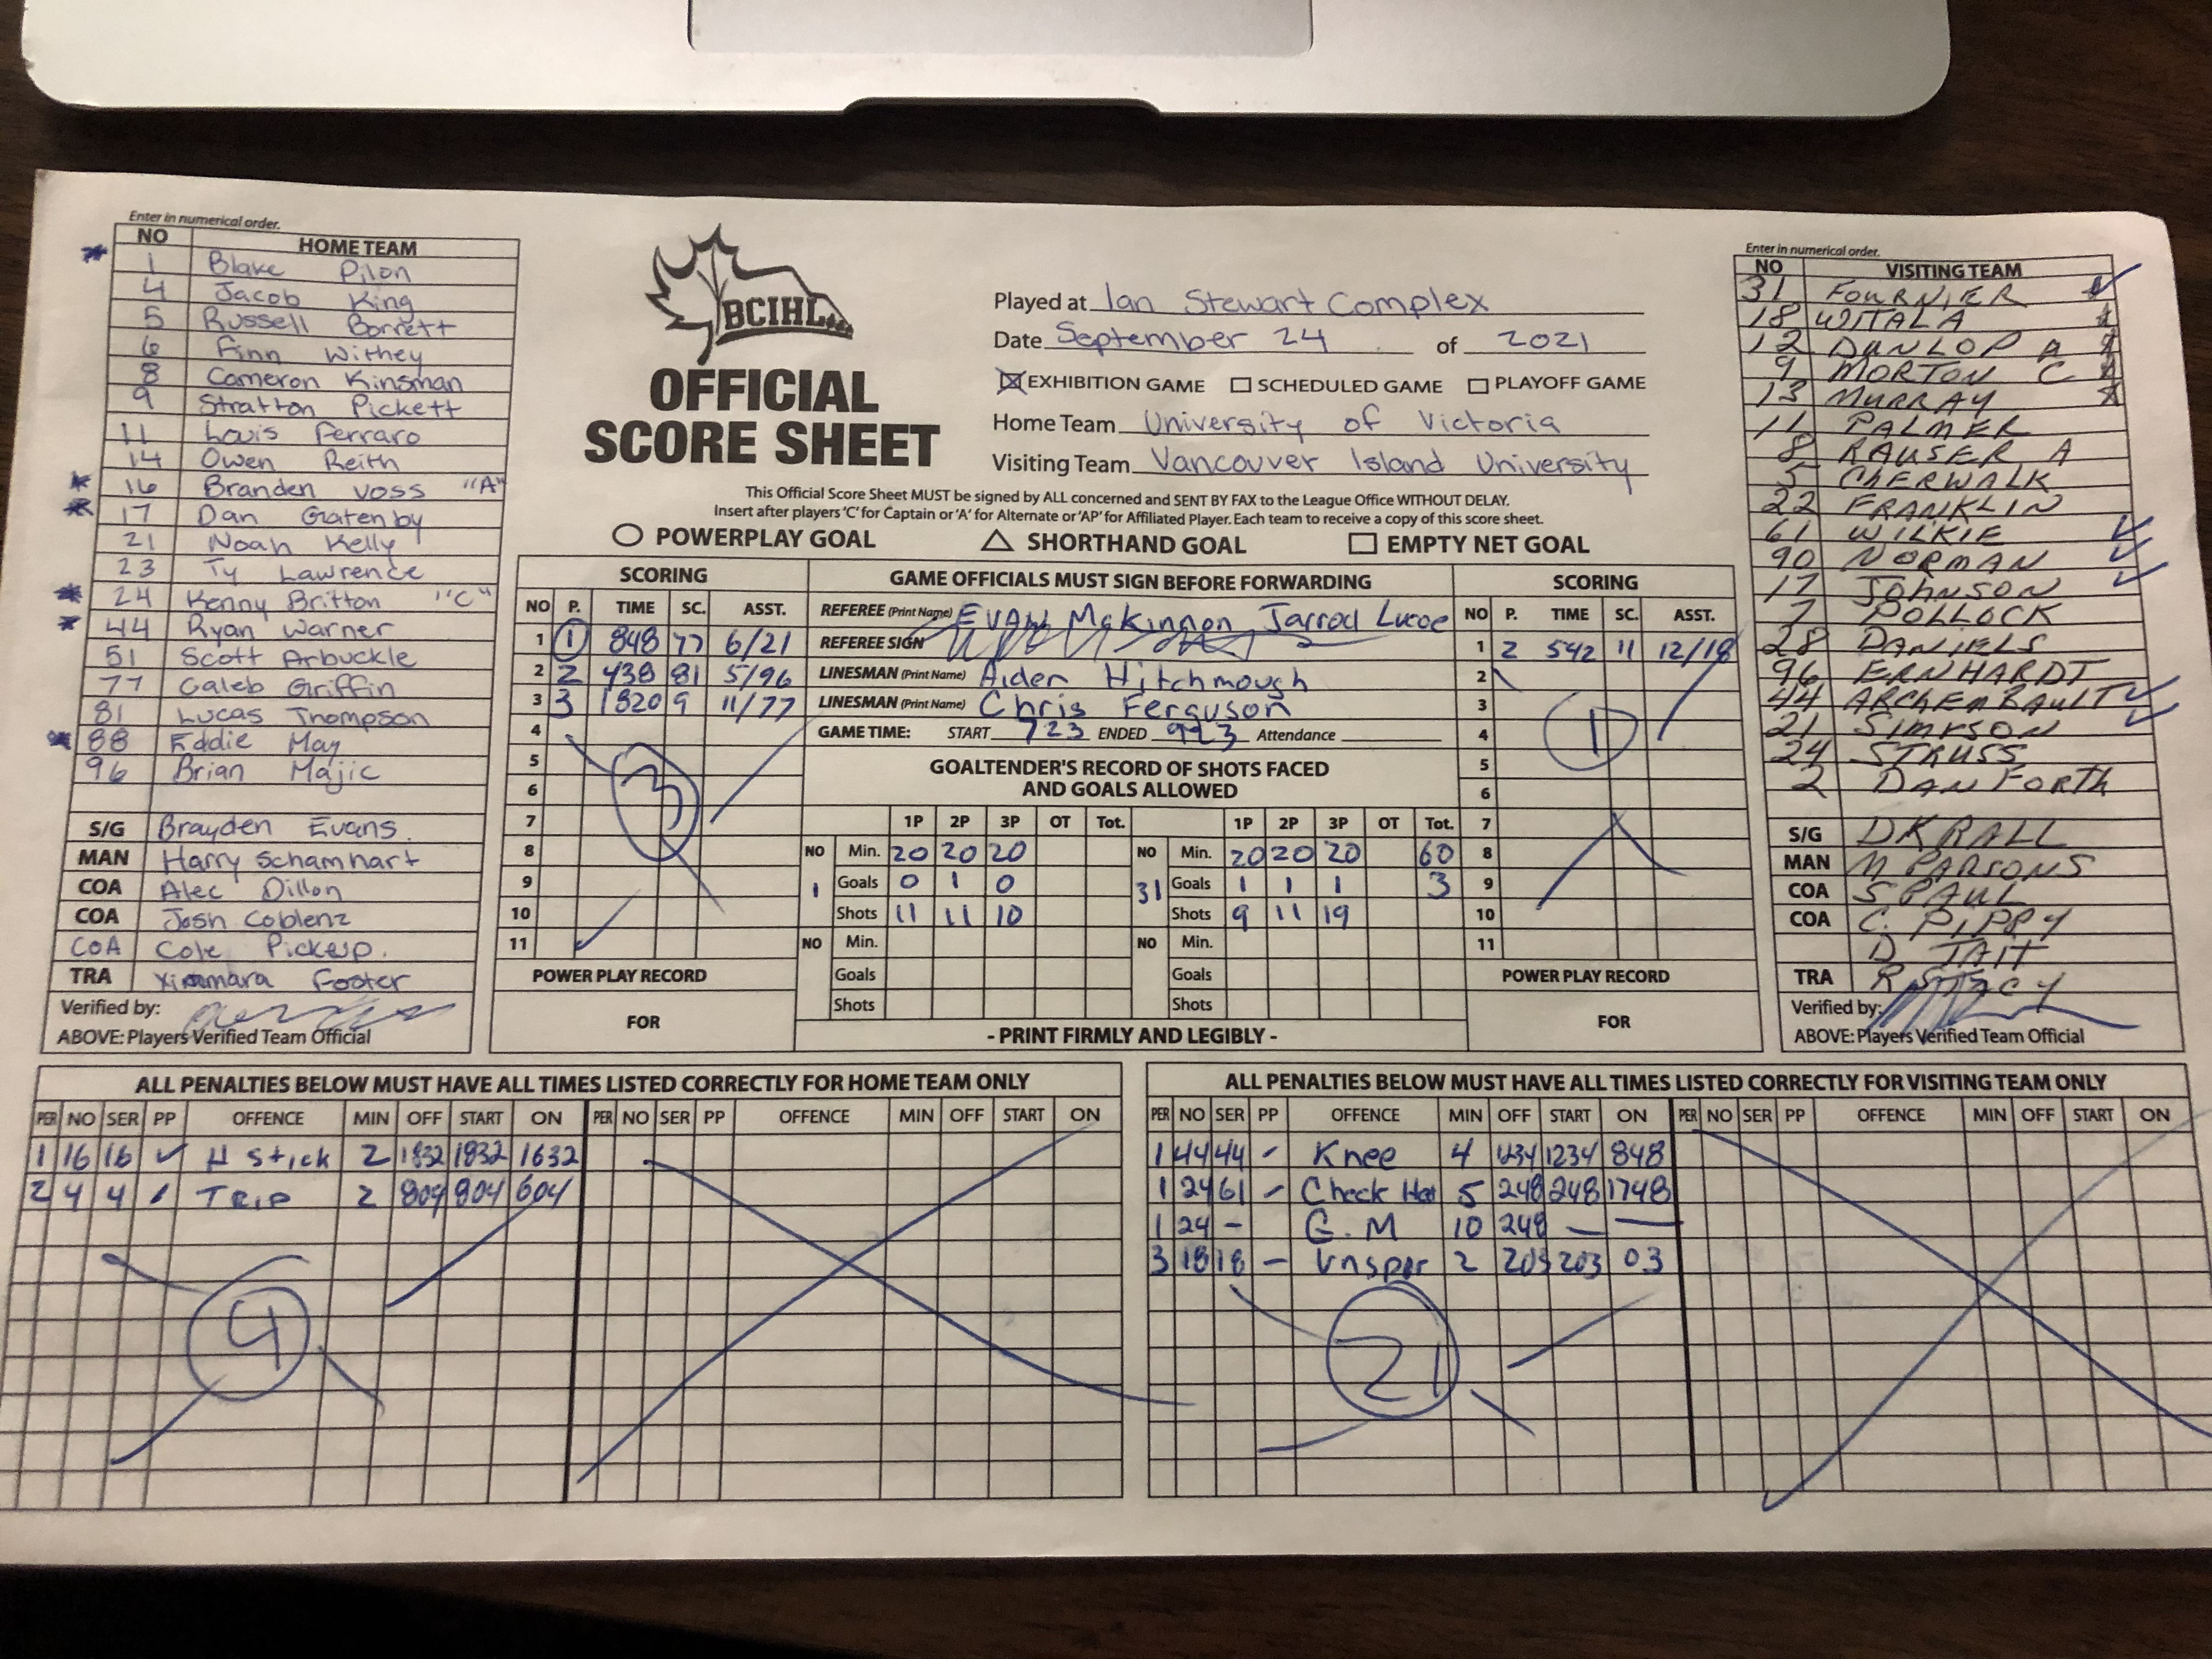 Enter in numerical order.
NO HOME TEAM
1 Blake Pilon
4 Jacob King
5 Russell Borrett
6 Finn Withey
8 Cameron Kinsman
9 Stratton Pickett
11 Louis Ferraro
14 Owen Reith
16 Branden Voss "A"
17 Dan Gatenby
21 Noah Kelly
23 Ty Lawrence
24 Kenny Britton "C"
44 Ryan Warner
51 Scott Arbuckle
77 Caleb Griffin
81 Lucas Thompson
88 Eddie May
96 Brian Majic
S/G Brayden Evans.
MAN Harry Schamhart
COA Alec Dillon
COA Josh Coblenz
COA Cole Pickup.
TRA Foster
Verified by:
ABOVE: Players Verified Team Official
BCIHL
OFFICIAL
SCORE SHEET
Played at Ian Stewart Complex
Date September 24 of 2021
EXHIBITION GAME SCHEDULED GAME PLAYOFF GAME
Home Team University of Victoria
Visiting Team Vancouver Island University
This Official Score Sheet MUST be signed by ALL concerned and SENT BY FAX to the League Office WITHOUT DELAY.
Insert after players 'C' for Captain or 'A' for Alternate or 'AP' for Affiliated Player. Each team to receive a copy of this score sheet.
POWERPLAY GOAL SHORTHAND GOAL EMPTY NET GOAL
SCORING
NO P. TIME SC. ASST.
1 1 848 77 6/21
2 2 438 81 5/96
3 3 1820 9 11/77
4
5
6
7
8
9
10
11
3
POWER PLAY RECORD
FOR
GAME OFFICIALS MUST SIGN BEFORE FORWARDING
REFEREE (Print Name) Evan McKinnon Jarrod Lucoe
REFEREE SIGN
LINESMAN (Print Name) Aiden Hitchmough
LINESMAN (Print Name) Chris Ferguson
GAME TIME: START 723 ENDED 923 Attendance
GOALTENDER'S RECORD OF SHOTS FACED
AND GOALS ALLOWED
1P 2P 3P OT Tot. 1P 2P 3P OT Tot.
NO 1 Min. 20 20 20 NO 31 Min. 20 20 20 60
Goals 0 1 0 Goals 1 1 1 3
Shots 11 11 10 Shots 9 11 19
NO Min. NO Min.
Goals Goals
Shots Shots
- PRINT FIRMLY AND LEGIBLY -
SCORING
NO P. TIME SC. ASST.
1 2 542 11 12/18
2
3
4
5
6
7
8
9
10
11
1
POWER PLAY RECORD
FOR
Enter in numerical order.
NO VISITING TEAM
31 FOURNIER
18 WITALA
12 DUNLOP A
9 MORTON C
13 MURRAY
11 PALMER
8 RAUSER A
5 CHERWALK
22 FRANKLIN
61 WILKIE
90 NORMAN
17 JOHNSON
7 POLLOCK
28 DANIELS
96 ERNHARDT
44 ARCHEMBAULT
21 SIMPSON
24 STRUSS
2 DANFORTH
S/G D KRALL
MAN M PARSONS
COA S. PAUL
COA C. PIPPY
D TAIT
TRA R STACY
Verified by:
ABOVE: Players Verified Team Official
ALL PENALTIES BELOW MUST HAVE ALL TIMES LISTED CORRECTLY FOR HOME TEAM ONLY
PER NO SER PP OFFENCE MIN OFF START ON PER NO SER PP OFFENCE MIN OFF START ON
1 16 16 H Stick 2 1832 1832 1632
2 4 4 Trip 2 804 804 604
4
ALL PENALTIES BELOW MUST HAVE ALL TIMES LISTED CORRECTLY FOR VISITING TEAM ONLY
PER NO SER PP OFFENCE MIN OFF START ON PER NO SER PP OFFENCE MIN OFF START ON
1 44 44 - Knee 4 1234 1234 848
1 24 61 - Check 5 248 248 1748
1 24 - G.M 10 248 — —
3 18 18 - Unspor 2 203 203 03
21